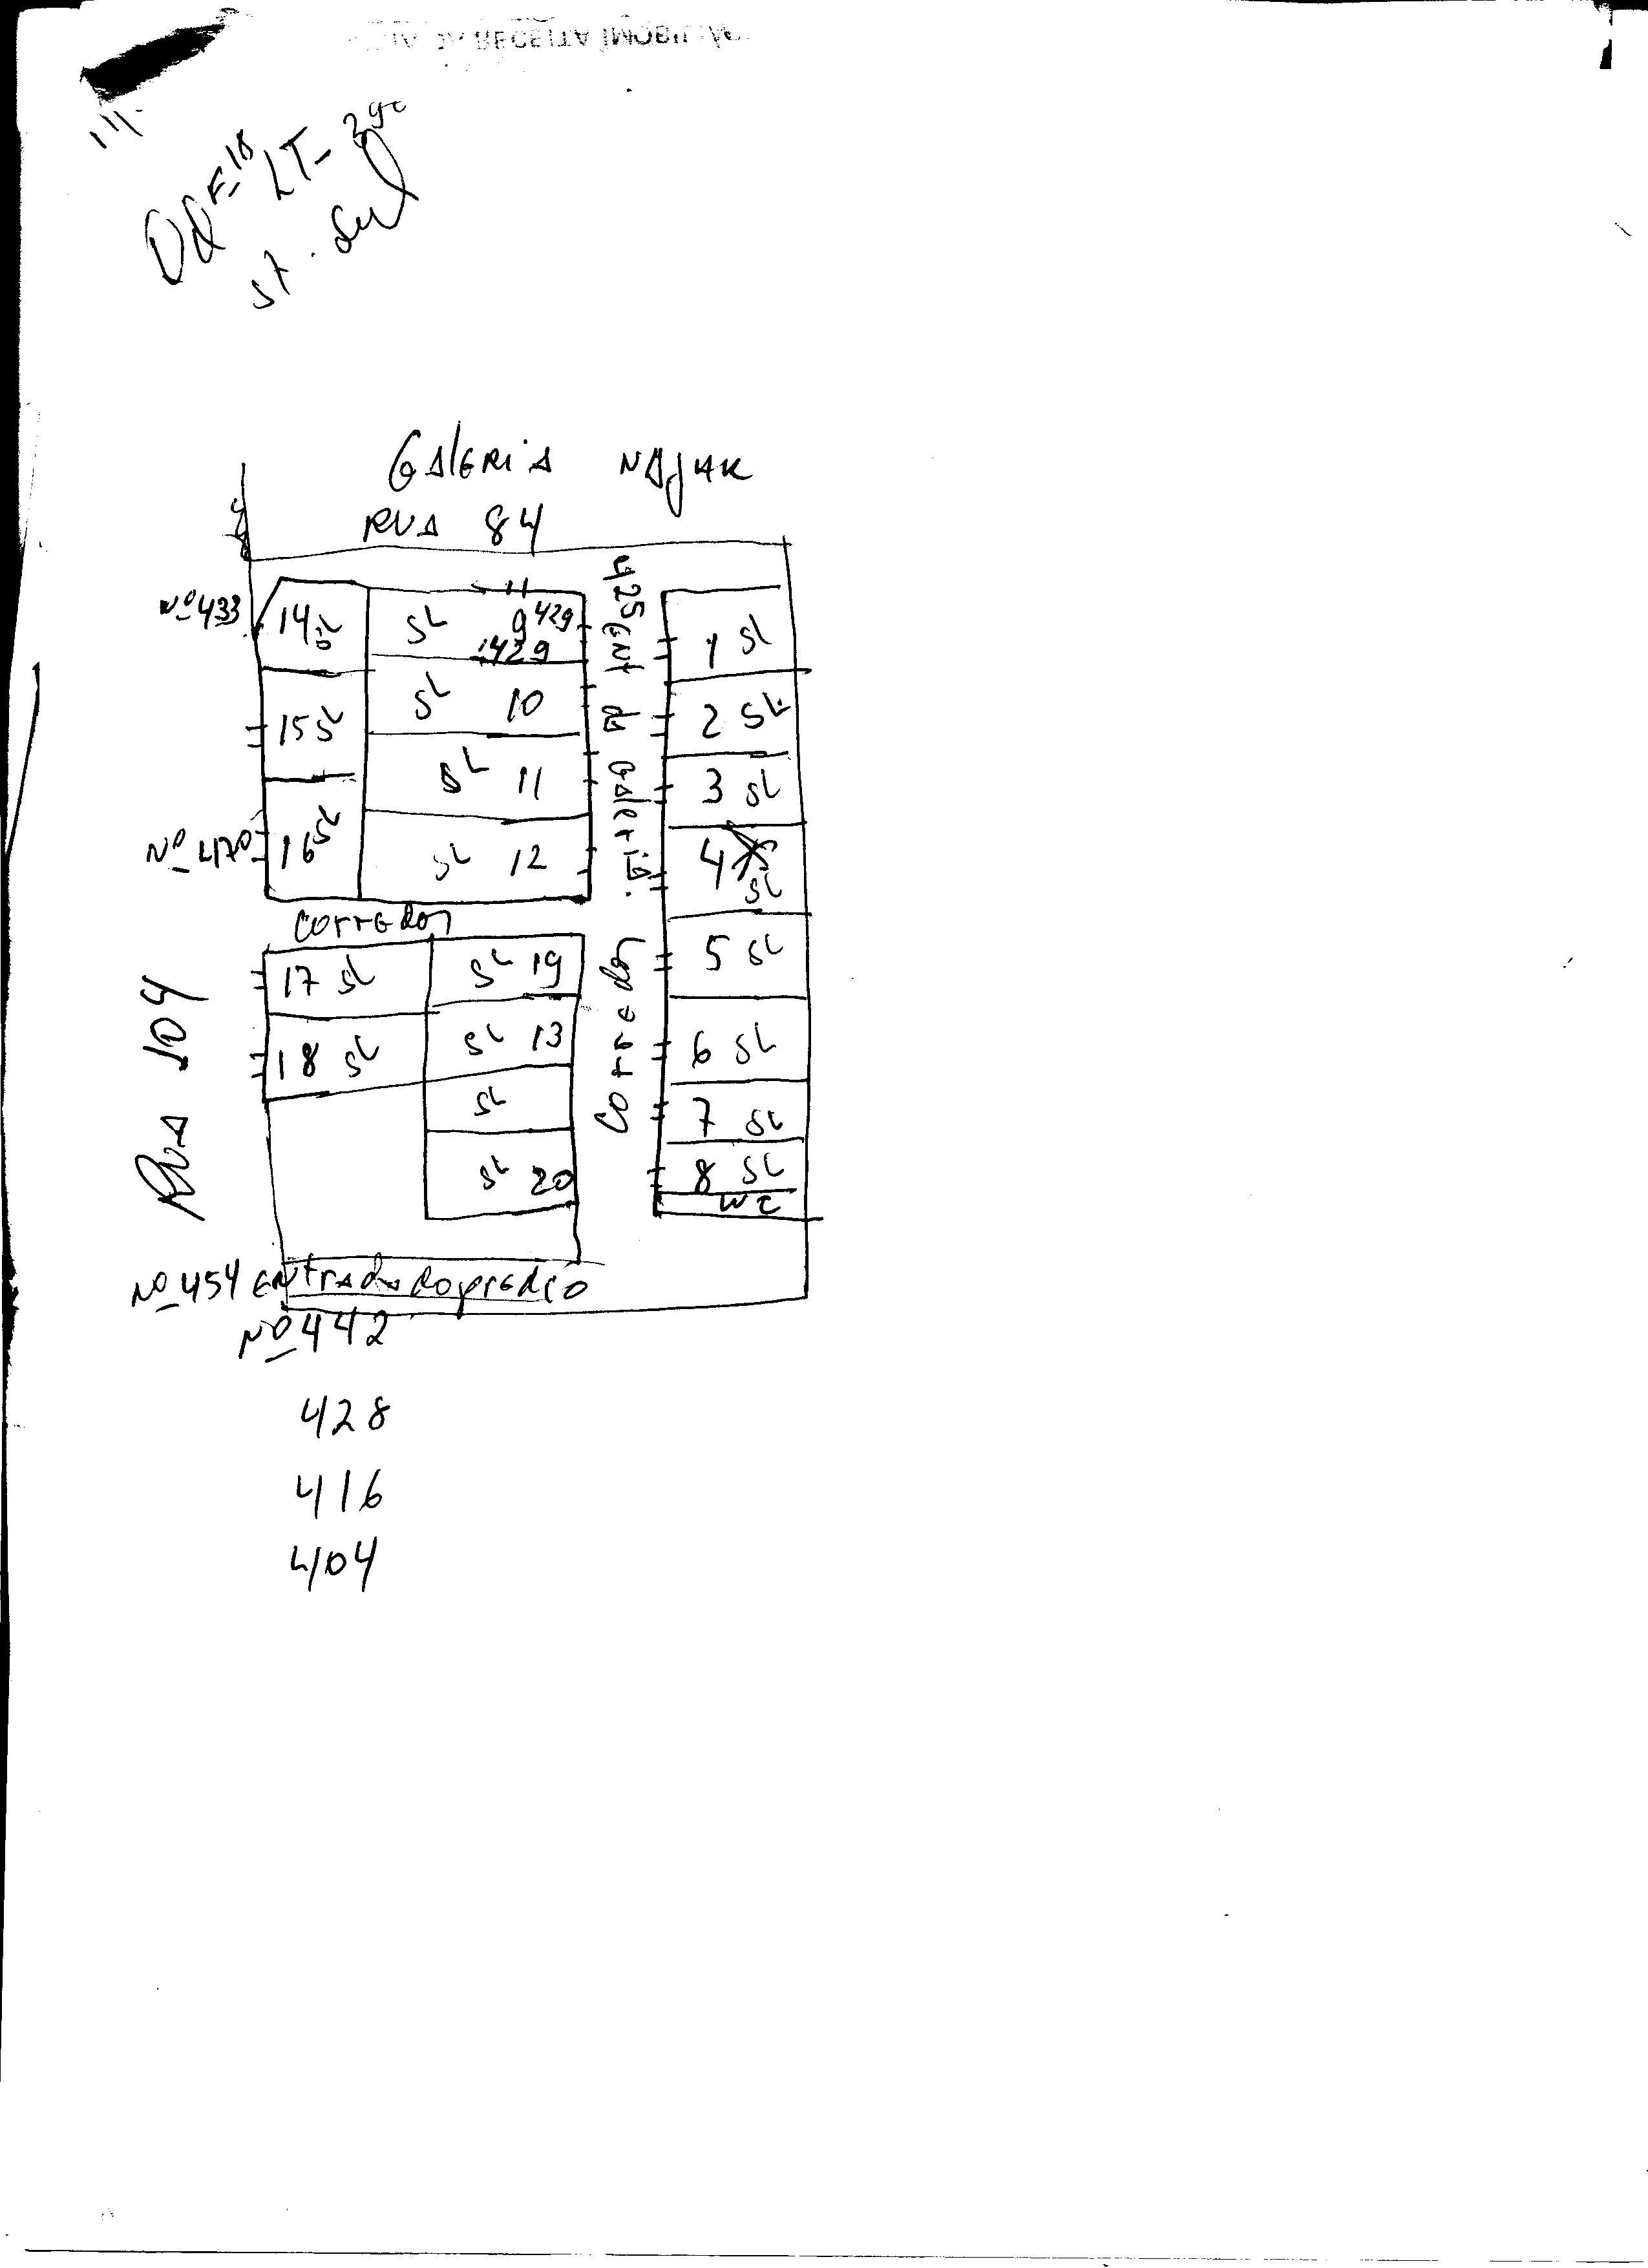 RECEITA IMOBILIÁ
Qd F-18 LT-
St. Sul
GALERIA NAJAR
RUA 84
Nº 433
14 SL
SL 9 429
429
15 SL
SL 10
SL 11
Nº 470
16 SL
SL 12
425 Ent da Galeria.
1 SL
2 SL
3 SL
4 SL
5 SL
6 SL
7 SL
8 SL
WC
Corredor
17 SL
SL 19
18 SL
SL 13
SL
SL 20
Corredor
RUA 104
Nº 454 Entrada do predio
Nº 442
428
416
404